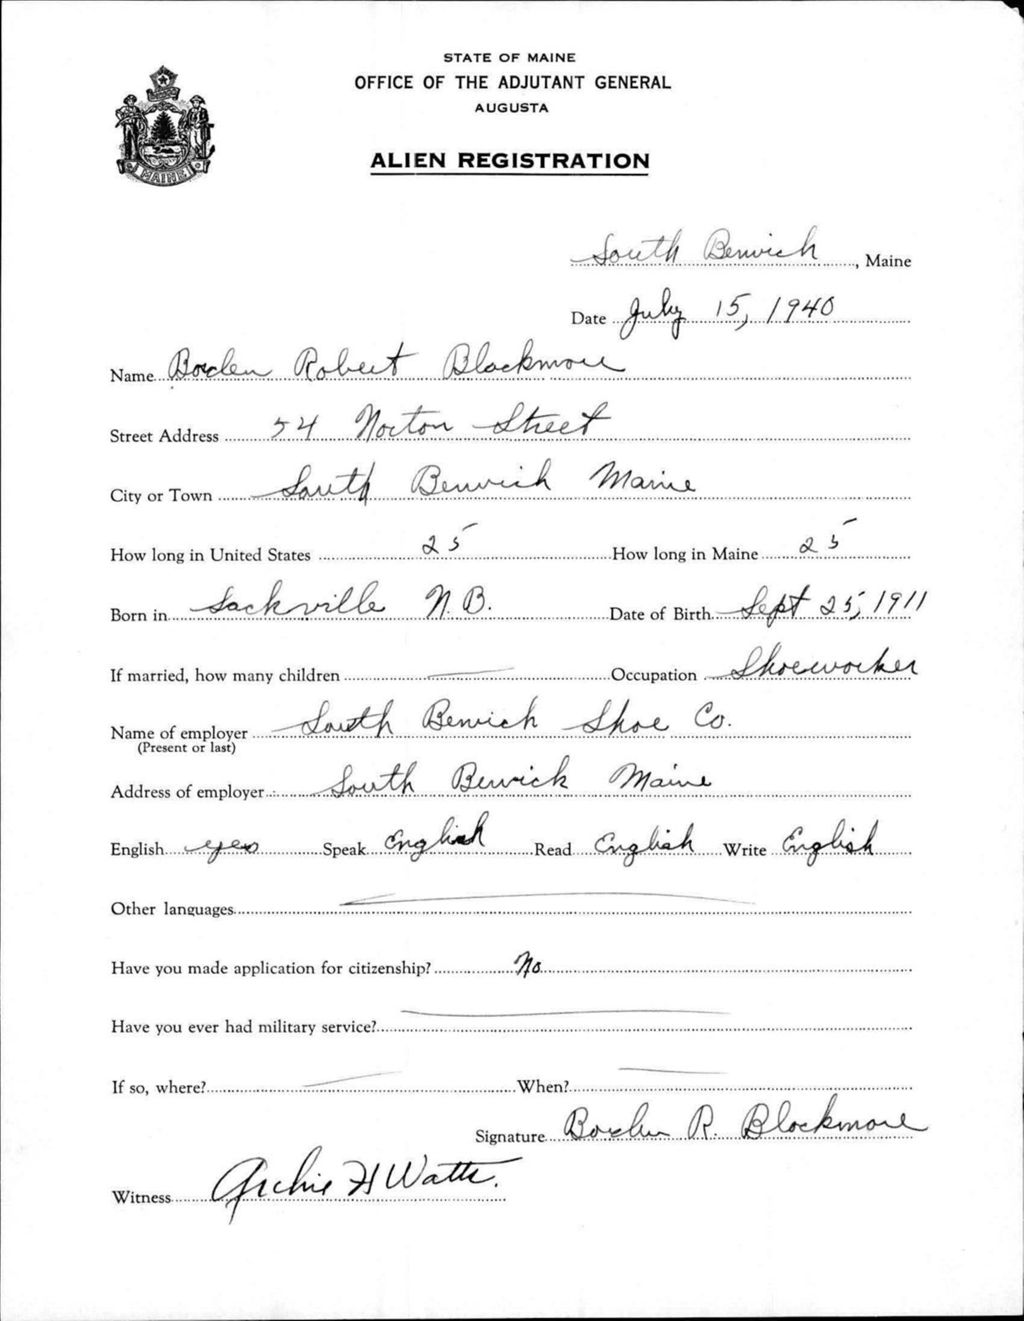 STATE OF MAINE
OFFICE OF THE ADJUTANT GENERAL
AUGUSTA
ALIEN REGISTRATION
MAINE
South Berwick, Maine
Date July 15, 1940
Name Borden Robert Blackmore
Street Address 54 Norton Street
City or Town South Berwick Maine
How long in United States 25 How long in Maine 25
Born in Sackville N.B. Date of Birth Sept 25, 1911
If married, how many children — Occupation Shoeworker
Name of employer South Berwick Shoe Co.
(Present or last)
Address of employer South Berwick Maine
English yes Speak English Read English Write English
Other languages —
Have you made application for citizenship? No
Have you ever had military service? —
If so, where? — When? —
Signature Borden R. Blackmore
Witness Archie H Watts.